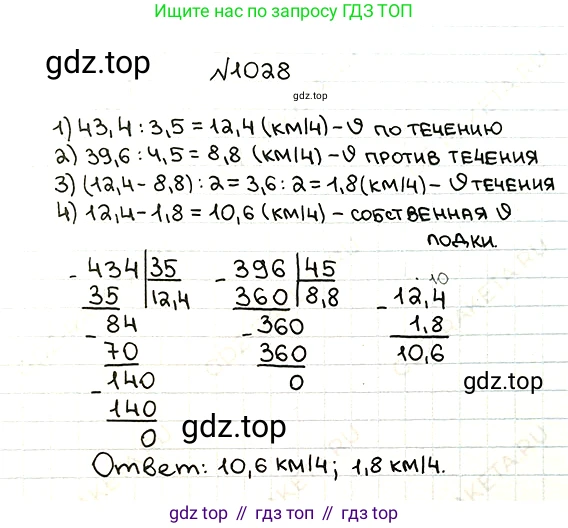 Ищите нас по запросу ГДЗ ТОП
gdz.top
№1028
gdz.top
1) 43,4 : 3,5 = 12,4 (км/ч) - υ по течению
2) 39,6 : 4,5 = 8,8 (км/ч) - υ против течения
3) (12,4 - 8,8) : 2 = 3,6 : 2 = 1,8 (км/ч) - υ течения
4) 12,4 - 1,8 = 10,6 (км/ч) - собственная υ
лодки.
- 434 | 35
35 | 12,4
- 84
70
- 140
140
0
- 396 | 45
360 | 8,8
- 360
360
0
. 10
- 12,4
1,8
10,6
gdz.top
gdz.top
Ответ: 10,6 км/ч; 1,8 км/ч.
gdz.top // гдз.топ // gdz top // гдз топ